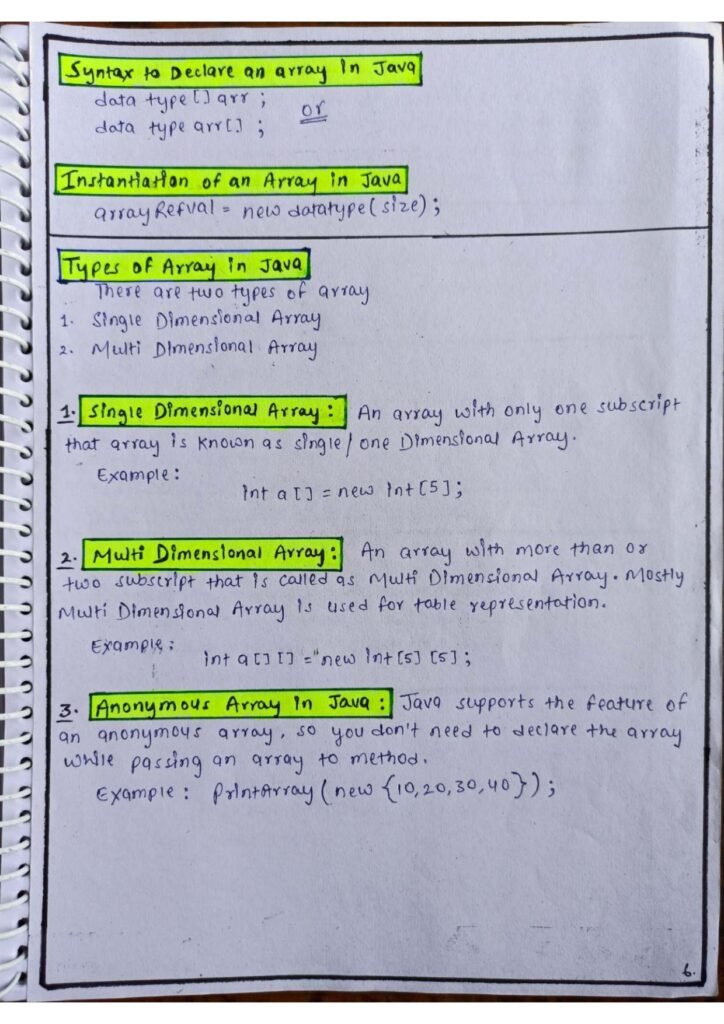 Syntax to Declare an array in Java
data type [] arr ;
or
data type arr[] ;
Instantiation of an Array in Java
arrayRefVal = new datatype(size);
Types of Array in Java
There are two types of array
1. Single Dimensional Array
2. Multi Dimensional Array
1. Single Dimensional Array : An array with only one subscript
that array is known as single/one Dimensional Array.
Example :
int a[] = new int[5];
2. Multi Dimensional Array : An array with more than or
two subscript that is called as Multi Dimensional Array. Mostly
Multi Dimensional Array is used for table representation.
Example :
int a[][] = new int[5][5];
3. Anonymous Array in Java : Java supports the feature of
an anonymous array, so you don't need to declare the array
while passing an array to method.
Example : PrintArray(new {10,20,30,40});
6.